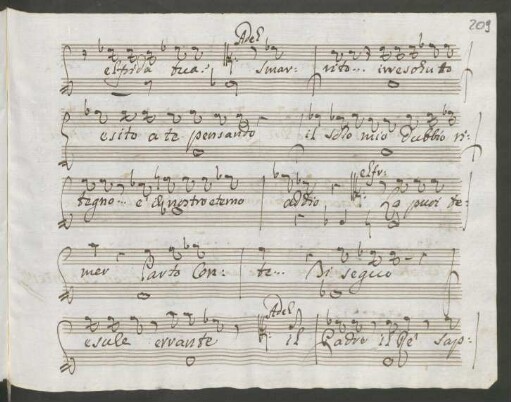 209
Adel
elfrida tua. smar- rito... irresoluto
esito a te pensando il solo mio dubbio ri-
tegno... è il nostro eterno addio elfr: puoi te-
mer Parto Con- te... Di seguo
esule errante Adel il Padre il Rè sap-